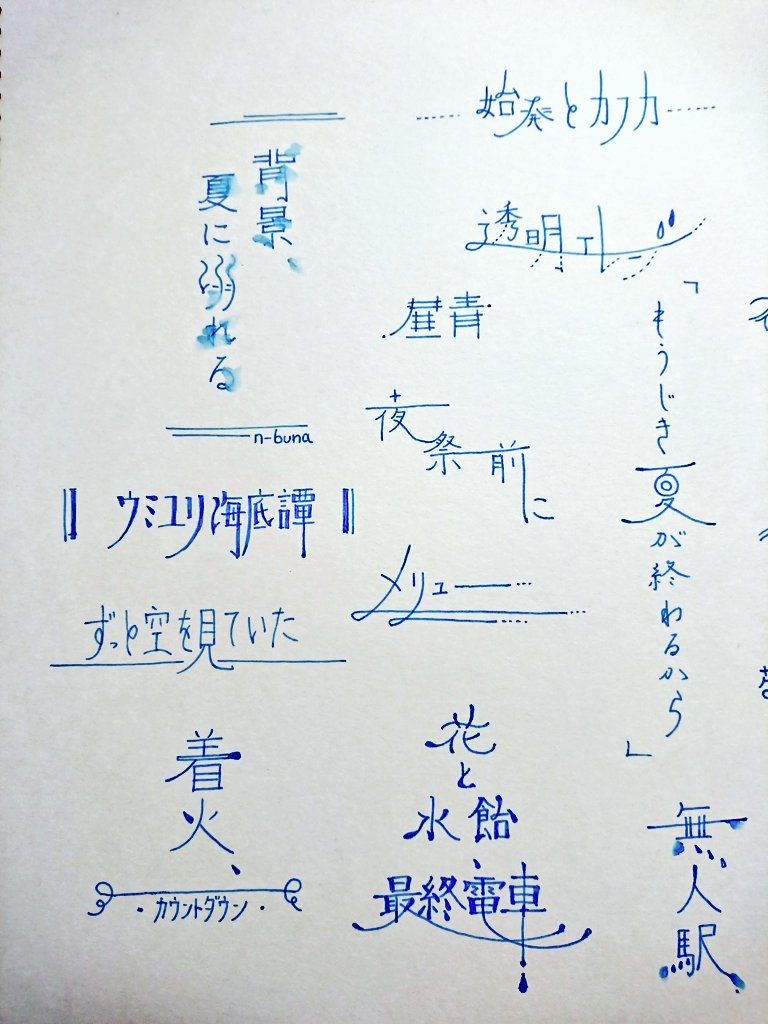 背景、
夏に溺れる
n-buna
ウミユリ海底譚
ずっと空を見ていた
着火、
・カウントダウン・
始発とカフカ
透明エレジー
昼青
夜祭前に
メリュー
花と
水飴、
最終電車
「もうじき夏が終わるから」
無人駅